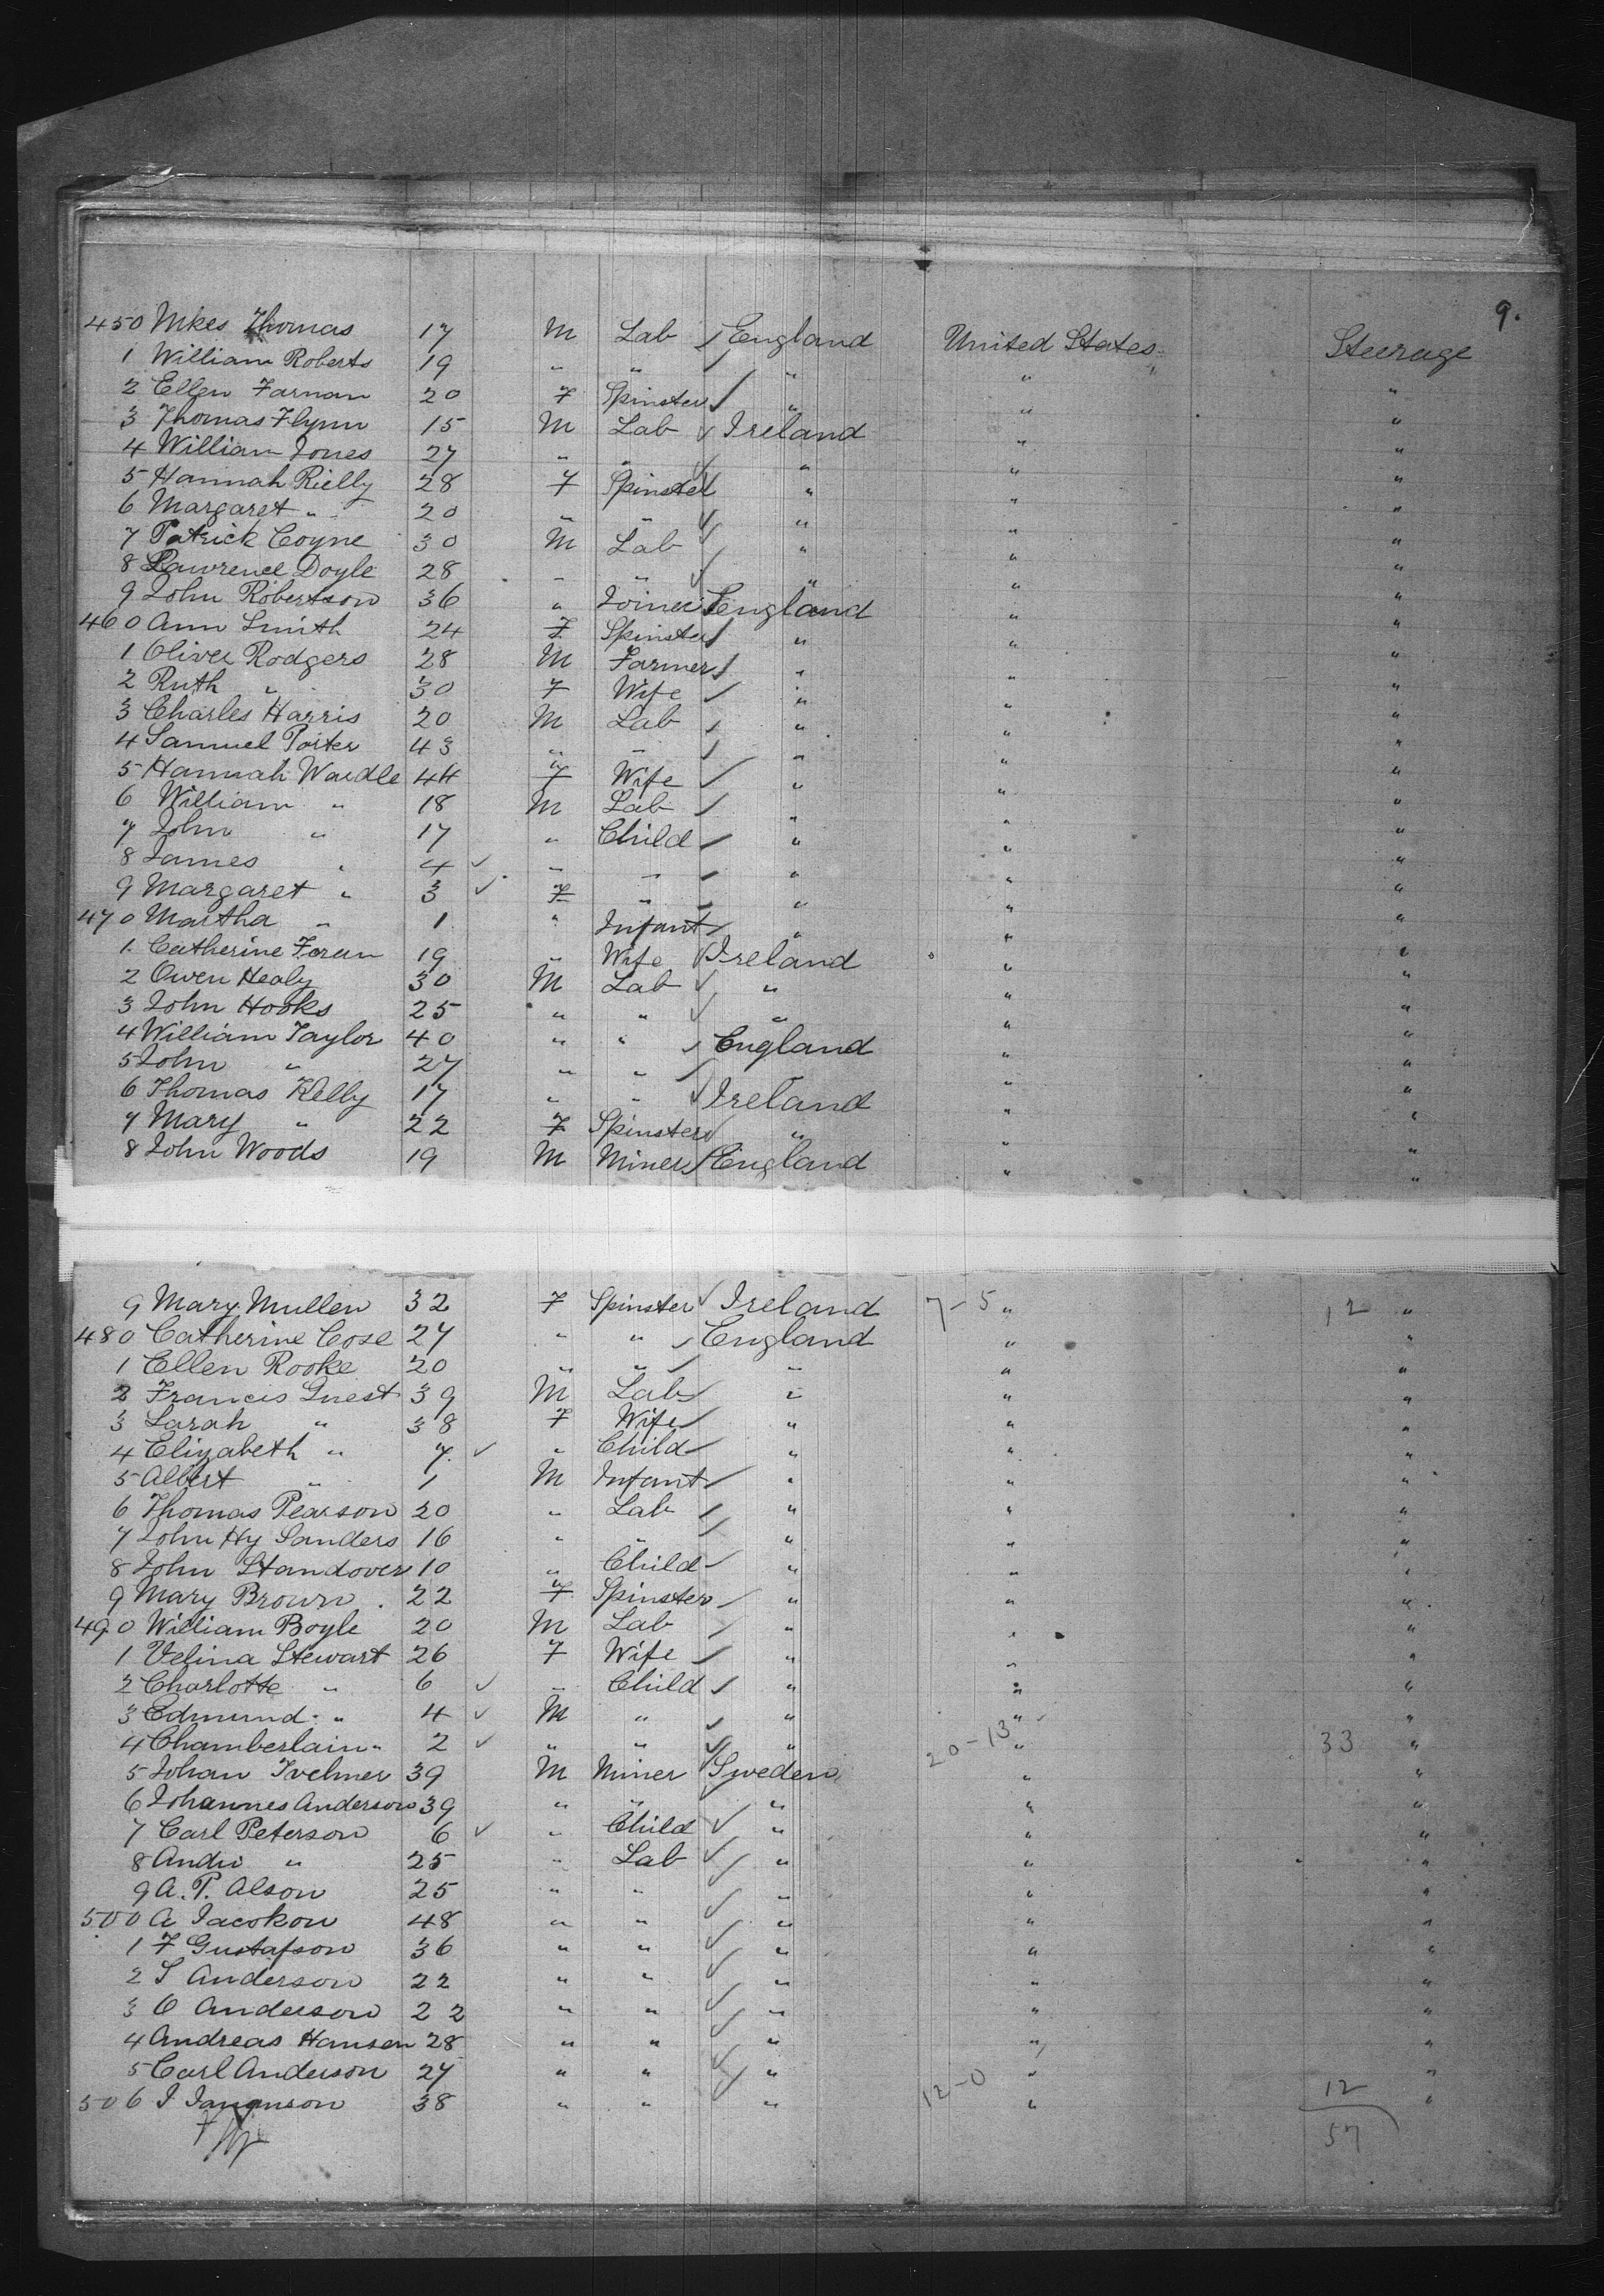 9.
450 Mkes Thomas 17 M Lab England United States Steerage
1 William Roberts 19 " " " " "
2 Ellen Farnan 20 F Spinster " " "
3 Thomas Flynn 15 M Lab Ireland " "
4 William Jones 27 " " " " "
5 Hannah Rielly 28 F Spinster " " "
6 Margaret " 20 " " " " "
7 Patrick Coyne 30 M Lab " " "
8 Lawrence Doyle 28 " " " " "
9 John Robertson 36 " Joiner England " "
460 Ann Smith 24 F Spinster " " "
1 Oliver Rodgers 28 M Farmer " " "
2 Ruth " 30 F Wife " " "
3 Charles Harris 20 M Lab " " "
4 Samuel Porter 43 " " " " "
5 Hannah Wardle 44 F Wife " " "
6 William " 18 M Lab " " "
7 John " 17 " Child " " "
8 James " 4 " " " " "
9 Margaret " 3 F " " " "
470 Martha " 1 " Infant " " "
1 Catherine Foran 19 " Wife Ireland " "
2 Owen Healy 30 M Lab " " "
3 John Hooks 25 " " " " "
4 William Taylor 40 " " England " "
5 John " 27 " " " " "
6 Thomas Kelly 17 " " Ireland " "
7 Mary " 22 F Spinster " " "
8 John Woods 19 M Miner England " "
9 Mary Mullen 32 F Spinster Ireland 7-5 " 12 "
480 Catherine Cose 27 " " England " "
1 Ellen Rooke 20 " " " " "
2 Francis Guest 39 M Lab " " "
3 Sarah " 38 F Wife " " "
4 Elizabeth " 7 " Child " " "
5 Albert " 1 M Infant " " "
6 Thomas Pearson 20 " Lab " " "
7 John Hy Sanders 16 " " " " "
8 John Standover 10 " Child " " "
9 Mary Brown 22 F Spinster " " "
490 William Boyle 20 M Lab " " "
1 Velina Stewart 26 F Wife " " "
2 Charlotte " 6 " Child " " "
3 Edmund " 4 M " " " "
4 Chamberlain " 2 " " " 20-13 " 33 "
5 Johan 39 M Miner Sweden " "
6 Johannes Anderson 39 " " " " "
7 Carl Peterson 6 " Child " " "
8 Andw " 25 " Lab " " "
9 A. P. Alson 25 " " " " "
500 A Jacokon 48 " " " " "
1 F Gustafson 36 " " " " "
2 S Anderson 22 " " " " "
3 O Anderson 22 " " " " "
4 Andreas Hansen 28 " " " " "
5 Carl Anderson 27 " " " " "
506 J 38 " " " 12-0 " 12 "
57